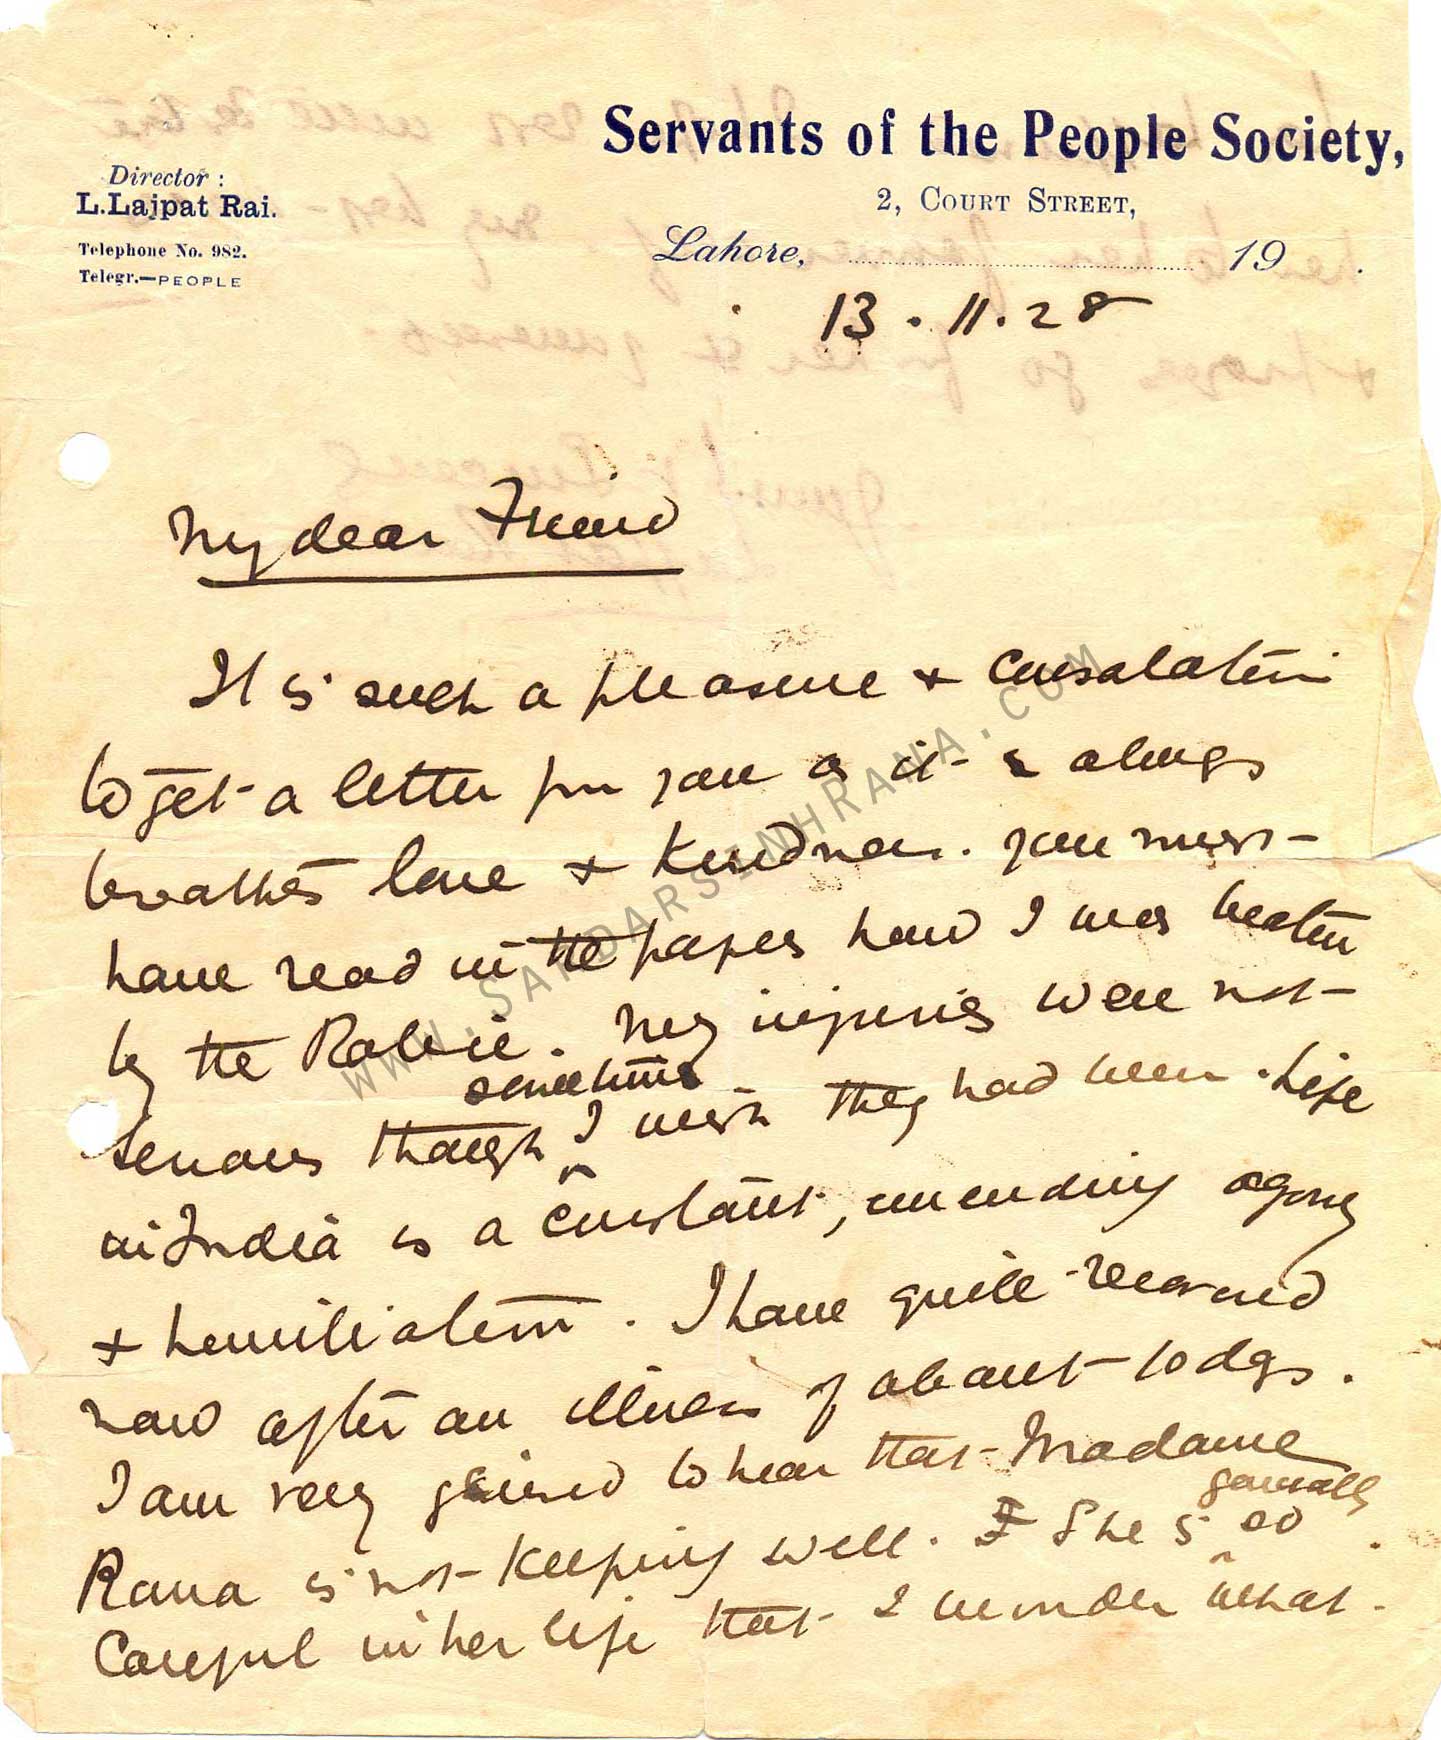 Servants of the People Society,
2, COURT STREET,
Director :
L. Lajpat Rai.
Telephone No. 982.
Telegr.—PEOPLE
Lahore, 19
13.11.28
My dear Friend
It is such a pleasure & consolation
to get a letter from you as it is always
breathes love & kindness. You must
have read in the papers how I was beaten
by the Police. My injuries were not
sometimes
serious though ^ I wish they had been. Life
in India is a constant, unending agony
& humiliation. I have quite recovered
now after an illness of about 10 days.
I am very grieved to hear that Madame
generally
Rana is not keeping well. She is ^ so
careful in her life that I wonder what
WWW.SARDARSINHRANA.COM